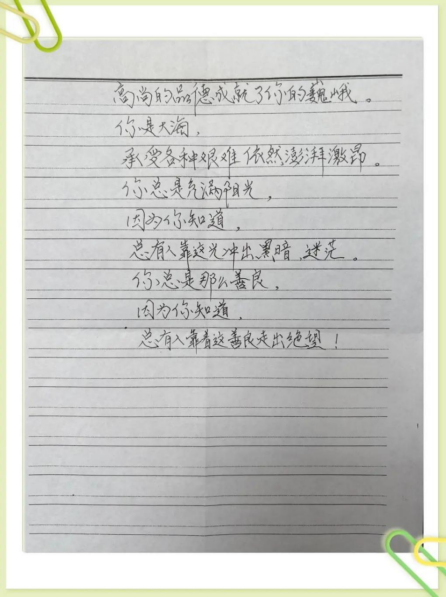 高尚的品德成就了你的巍峨。
你是大海，
承受各种艰难依然澎湃激昂。
你总是充满阳光，
因为你知道，
总有人靠这光冲出黑暗、迷茫。
你总是那么善良，
因为你知道，
总有人靠着这善良走出绝望！